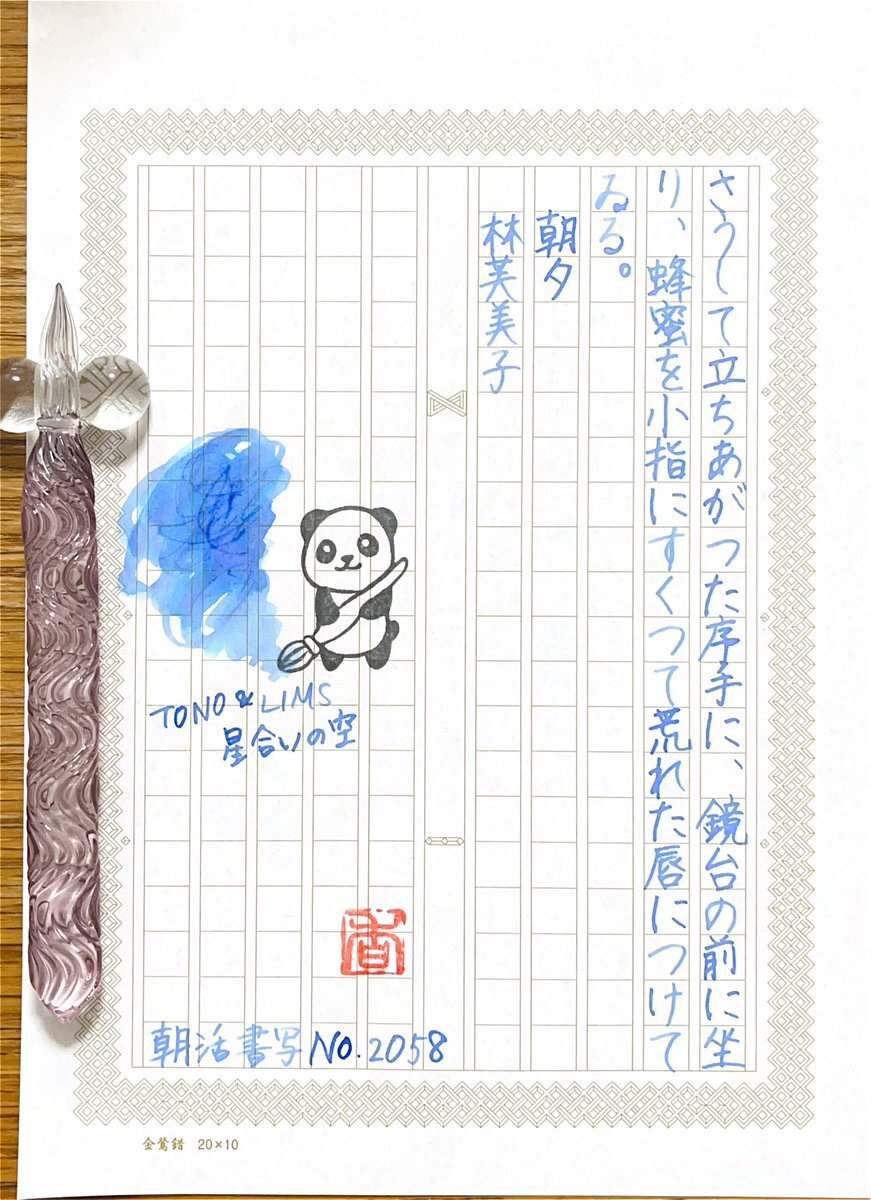 さうして立ちあがつた序手に、鏡台の前に坐
り、蜂蜜を小指にすくつて荒れた唇につけて
ゐる。
朝夕
林芙美子
TONO & LIMS
星合いの空
香
朝活書写 NO.2058
金鶯錯 20×10